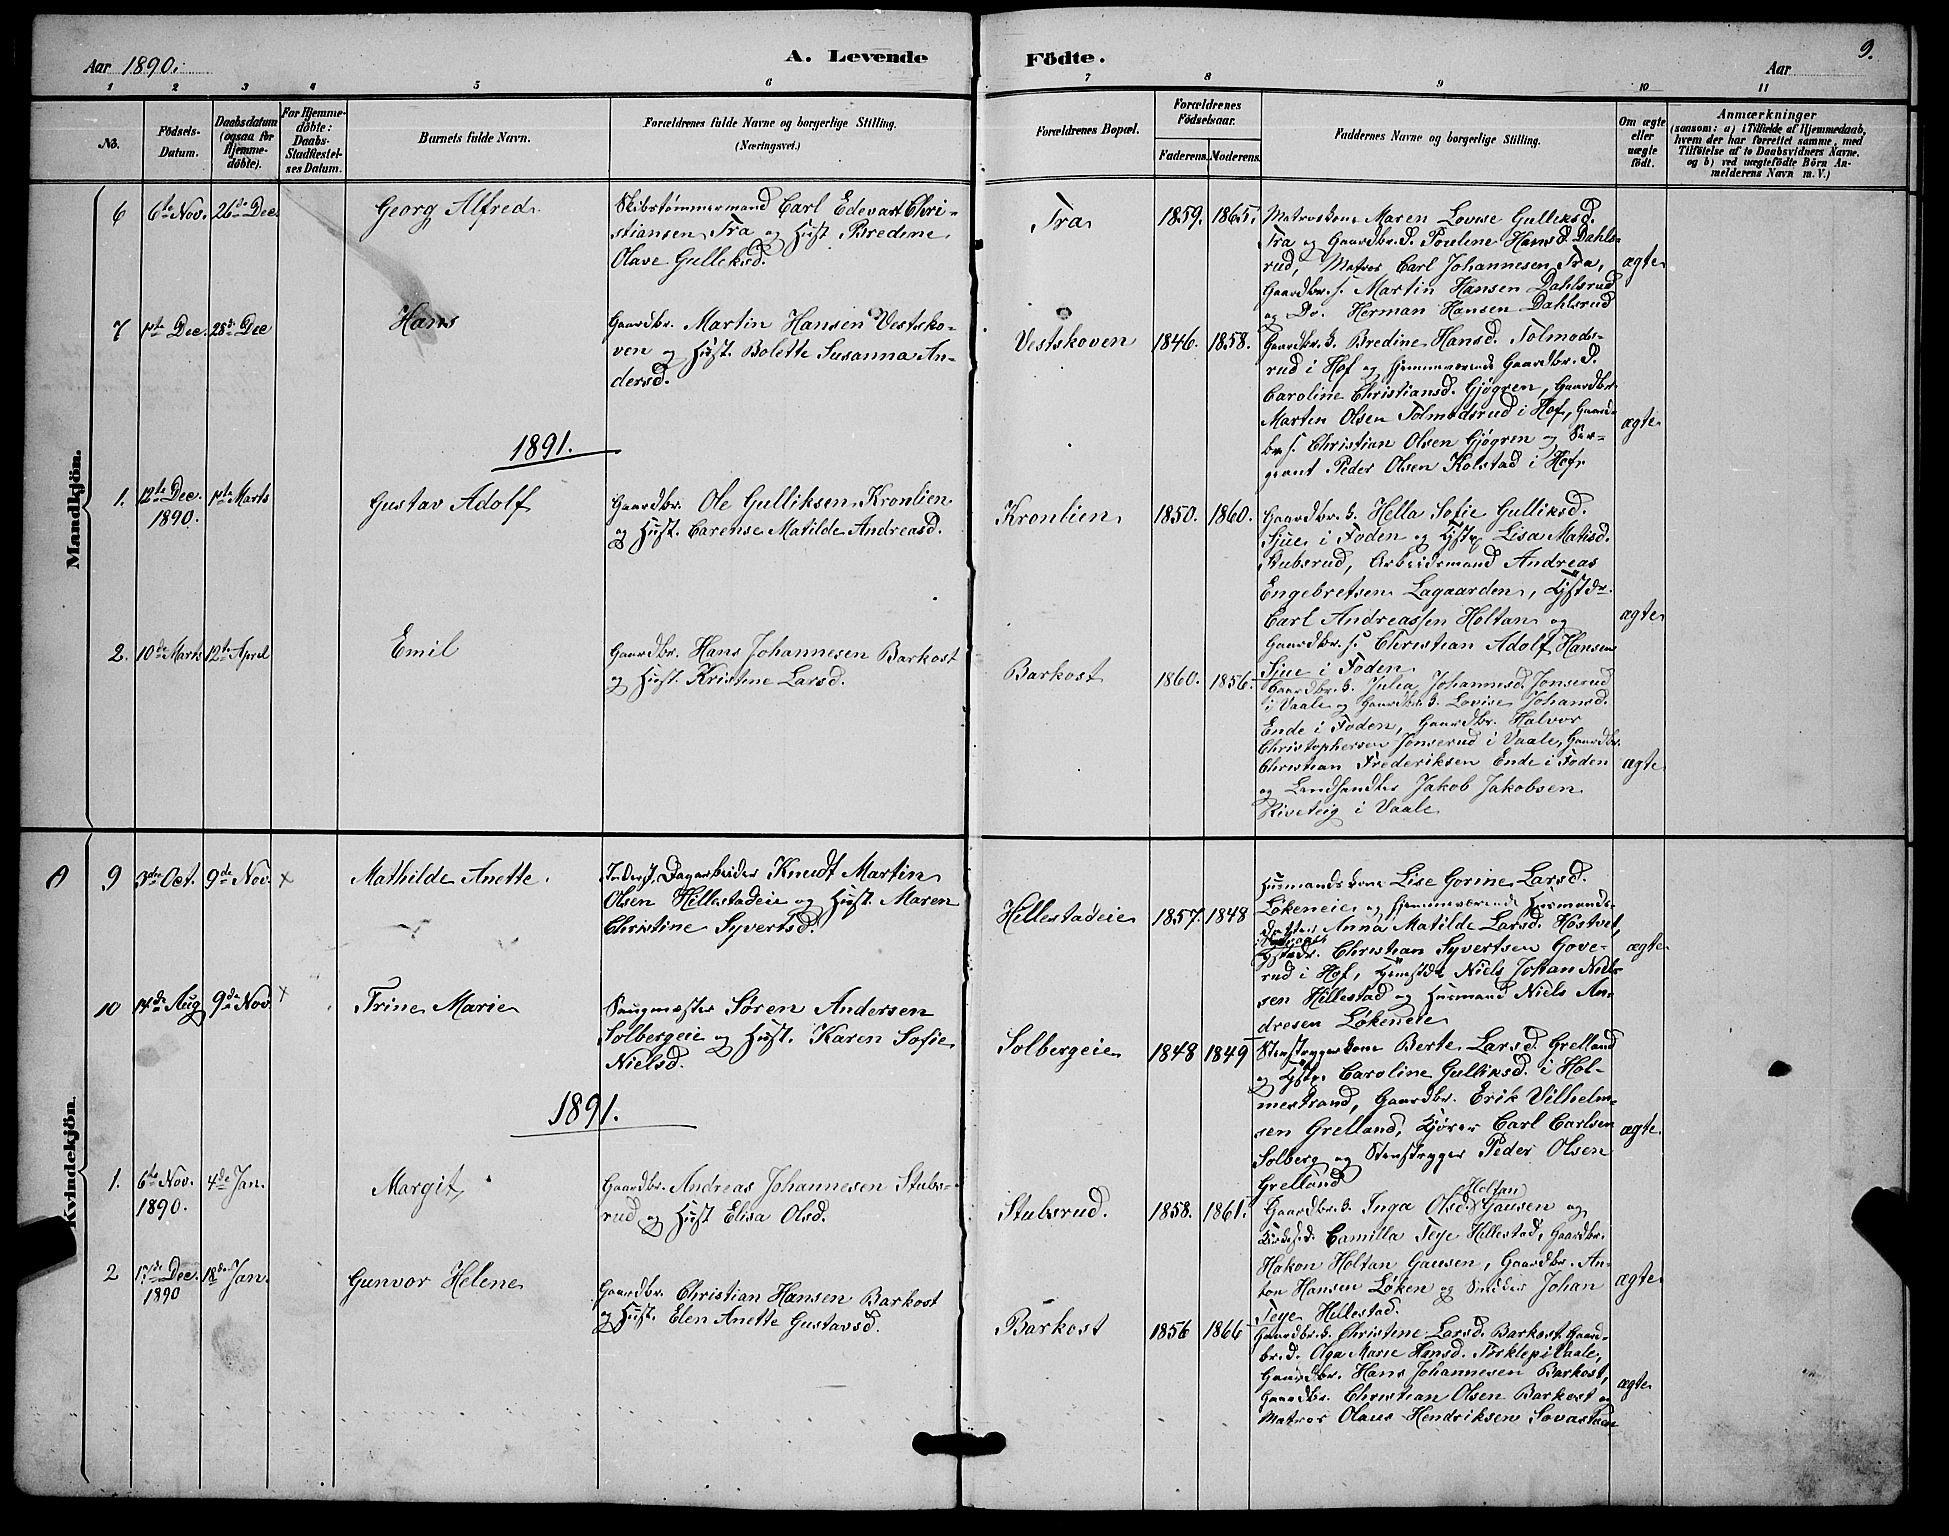 Aar 1890.
A. Levende
Födte.
Aar
9.
1 2 3 4 5 6 7 8 9 10 11
No.
Födsels-
Datum.
Daabsdatum
(ogsaa for
Hjemme-
döbte).
For Hjemme-
döbte:
Daabs-
Stadfæstel-
ses Datum.
Barnets fulde Navn.
Forældrenes fulde Navne og borgerlige Stilling.
(Næringsvei.)
Forældrenes Bopæl.
Forældrenes
Födselsaar.
Faderens. Moderens.
Faddernes Navne og borgerlige Stilling.
Om ægte
eller
uægte
födt.
Anmærkninger
(saasom: a) i Tilfælde af Hjemmedaab,
hvem der har forrettet samme, med
Tilföielse af to Daabsvidners Navne.
og b) ved uægtefödte Börn An-
melderens Navn m. V.)
Mandkjön.
6 6te Nov. 26de Dec.
Georg Alfred
Skibstømmermand Carl Edevart Chri-
stiansen Fra og Hust. Bredine
Olave Gulliksd.
Fra
1859. 1865.
Matroskone Maren Lovise Gulliksd.
Fra og Gaardbr.d. Pouline Hansd. Dahls-
rud, Matros Carl Johannesen Fra,
Gaardbr.s. Martin Hansen Dahlsrud
og Do. Herman Hansen Dahlsrud
ægte
7 1ste Dec. 28de Dec
Hans
Gaardbr. Martin Hansen Vestsko-
ven og Hust. Bolette Susanna An-
dersd.
Vestskoven
1846. 1858.
Gaardbr.k. Bredine Hansd. Tolmods-
rud i Hof og hjemmeværende Gaardbr.d.
Caroline Christiansd. Gjøgren, Gaardbr.
Martin Olsen Tolmodsrud i Hof, Gaard-
br.s. Christian Olsen Gjøgren og Ser-
geant Peder Olsen Kolstad i Hof.
ægte
1891.
1. 12te Dec. 1ste Marts
1890.
Gustav Adolf
Gaardbr. Ole Gulliksen Kronlien
og Hust. Carense Matilde Andreasd.
Kronlien
1850. 1860.
Gaardbr.k. Hella Sofie Gulliksd.
Sjue i Foden og Tjstp. Lisa Matisd.
Stubsrud, Arbeidsmand Andreas
Engebretsen Lagaarden, Tjstdr.
Carl Andreassen Holtan og
Gaardbr.s. Christian Adolf Hansen
Sjue i Foden
ægte
2. 10de Marts 12te April
Emil
Gaardbr. Hans Johannesen Barkost
og Hust. Kristine Larsd.
Barkost
1860. 1856.
Gaardbr.k. Julia Johannesd. Jonserud
i Vaale og Gaardbr.k. Lovise Johansd.
Ende i Foden, Gaardbr. Halvor
Christophersen Jonserud i Vaale, Gaardbr.
Christian Frederiksen Ende i Foden
og Landhandler Jakob Jakobsen
i Vaale
ægte
Kvindekjön.
9 3die Oct. 9de Nov. x
Mathilde Anette.
Inderst, Dagarbeider Knudt Martin
Olsen Hillestadeie og Hust. Maren
Christine Syvertsd.
Hillestadeie
1857. 1848
Husmandskone Lise Gorine Larsd.
Løkeneie og hjemmeværende Husmands-
datter Anna Matilde Larsd. Hostvet,
Christian Syvertsen Gove-
rud i Hof, Niels Johan Niel-
sen Hillestad og Husmand Niels An-
dresen Løkeneie
ægte
10 14de Aug 9de Nov x
Trine Marie
Saugmester Søren Andersen
Solbergeie og Hust. Karen Sofie
Nielsd.
Solbergeie
1848 1849
Stenstrygerkone Berte Larsd. Grelland
og Tjstp. Caroline Gulliksd. i Hol-
mestrand, Gaardbr. Erik Vilhelm-
sen Grelland, Kjører Carl Carlsen
Solberg og Stenstryger Peder Olsen
Grelland
ægte.
1891.
1. 6te Nov. 4de Jan.
1890.
Margit
Gaardbr. Andreas Johannesen Stubs-
rud og Hust Elisa Olsd.
Stubsrud.
1858. 1861.
Holtan
Gaardbr.k. Inga Olsd. Gausen og
Camilla Teye Hillestad, Gaardbr.
Hakon Holtan Gausen, Gaardbr. An-
ton Hansen Løken og Snedker Johan
Teye Hillestad.
ægte
2 17de Dec. 18de Jan.
1890
Gunvor Helene
Gaardbr. Christian Hansen Barkost
og Hust. Elen Anette Gustavsd.
Barkost
1856 1866
Gaardbr.k. Christine Larsd. Barkost, Gaard-
br.d. Olga Marie Hansd. Torklep i Vaale,
Gaardbr. Hans Johannesen Barkost,
Gaardbr. Christian Olsen Barkost og
Matros Olaus Hendriksen
ægte